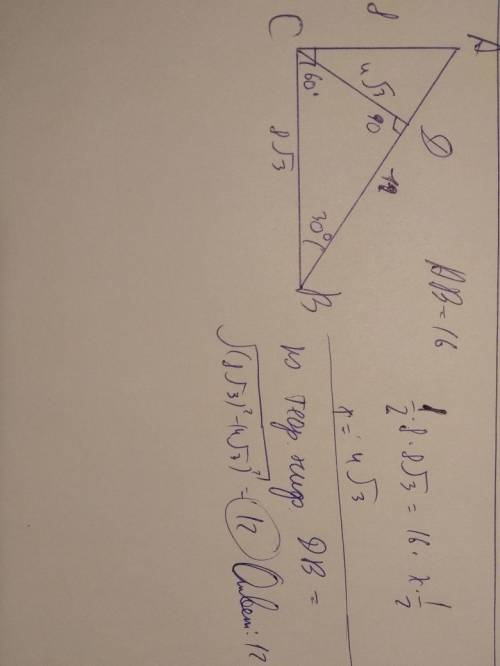 A
8
C
4√3
D
90
60°
12
8√3
30°
B
AB=16
1/2·8·8√3 = 16·x·1/2
x = 4√3
По теор. пифр. DB =
√(8√3)²-(4√3)² = 12 Ответ: 12